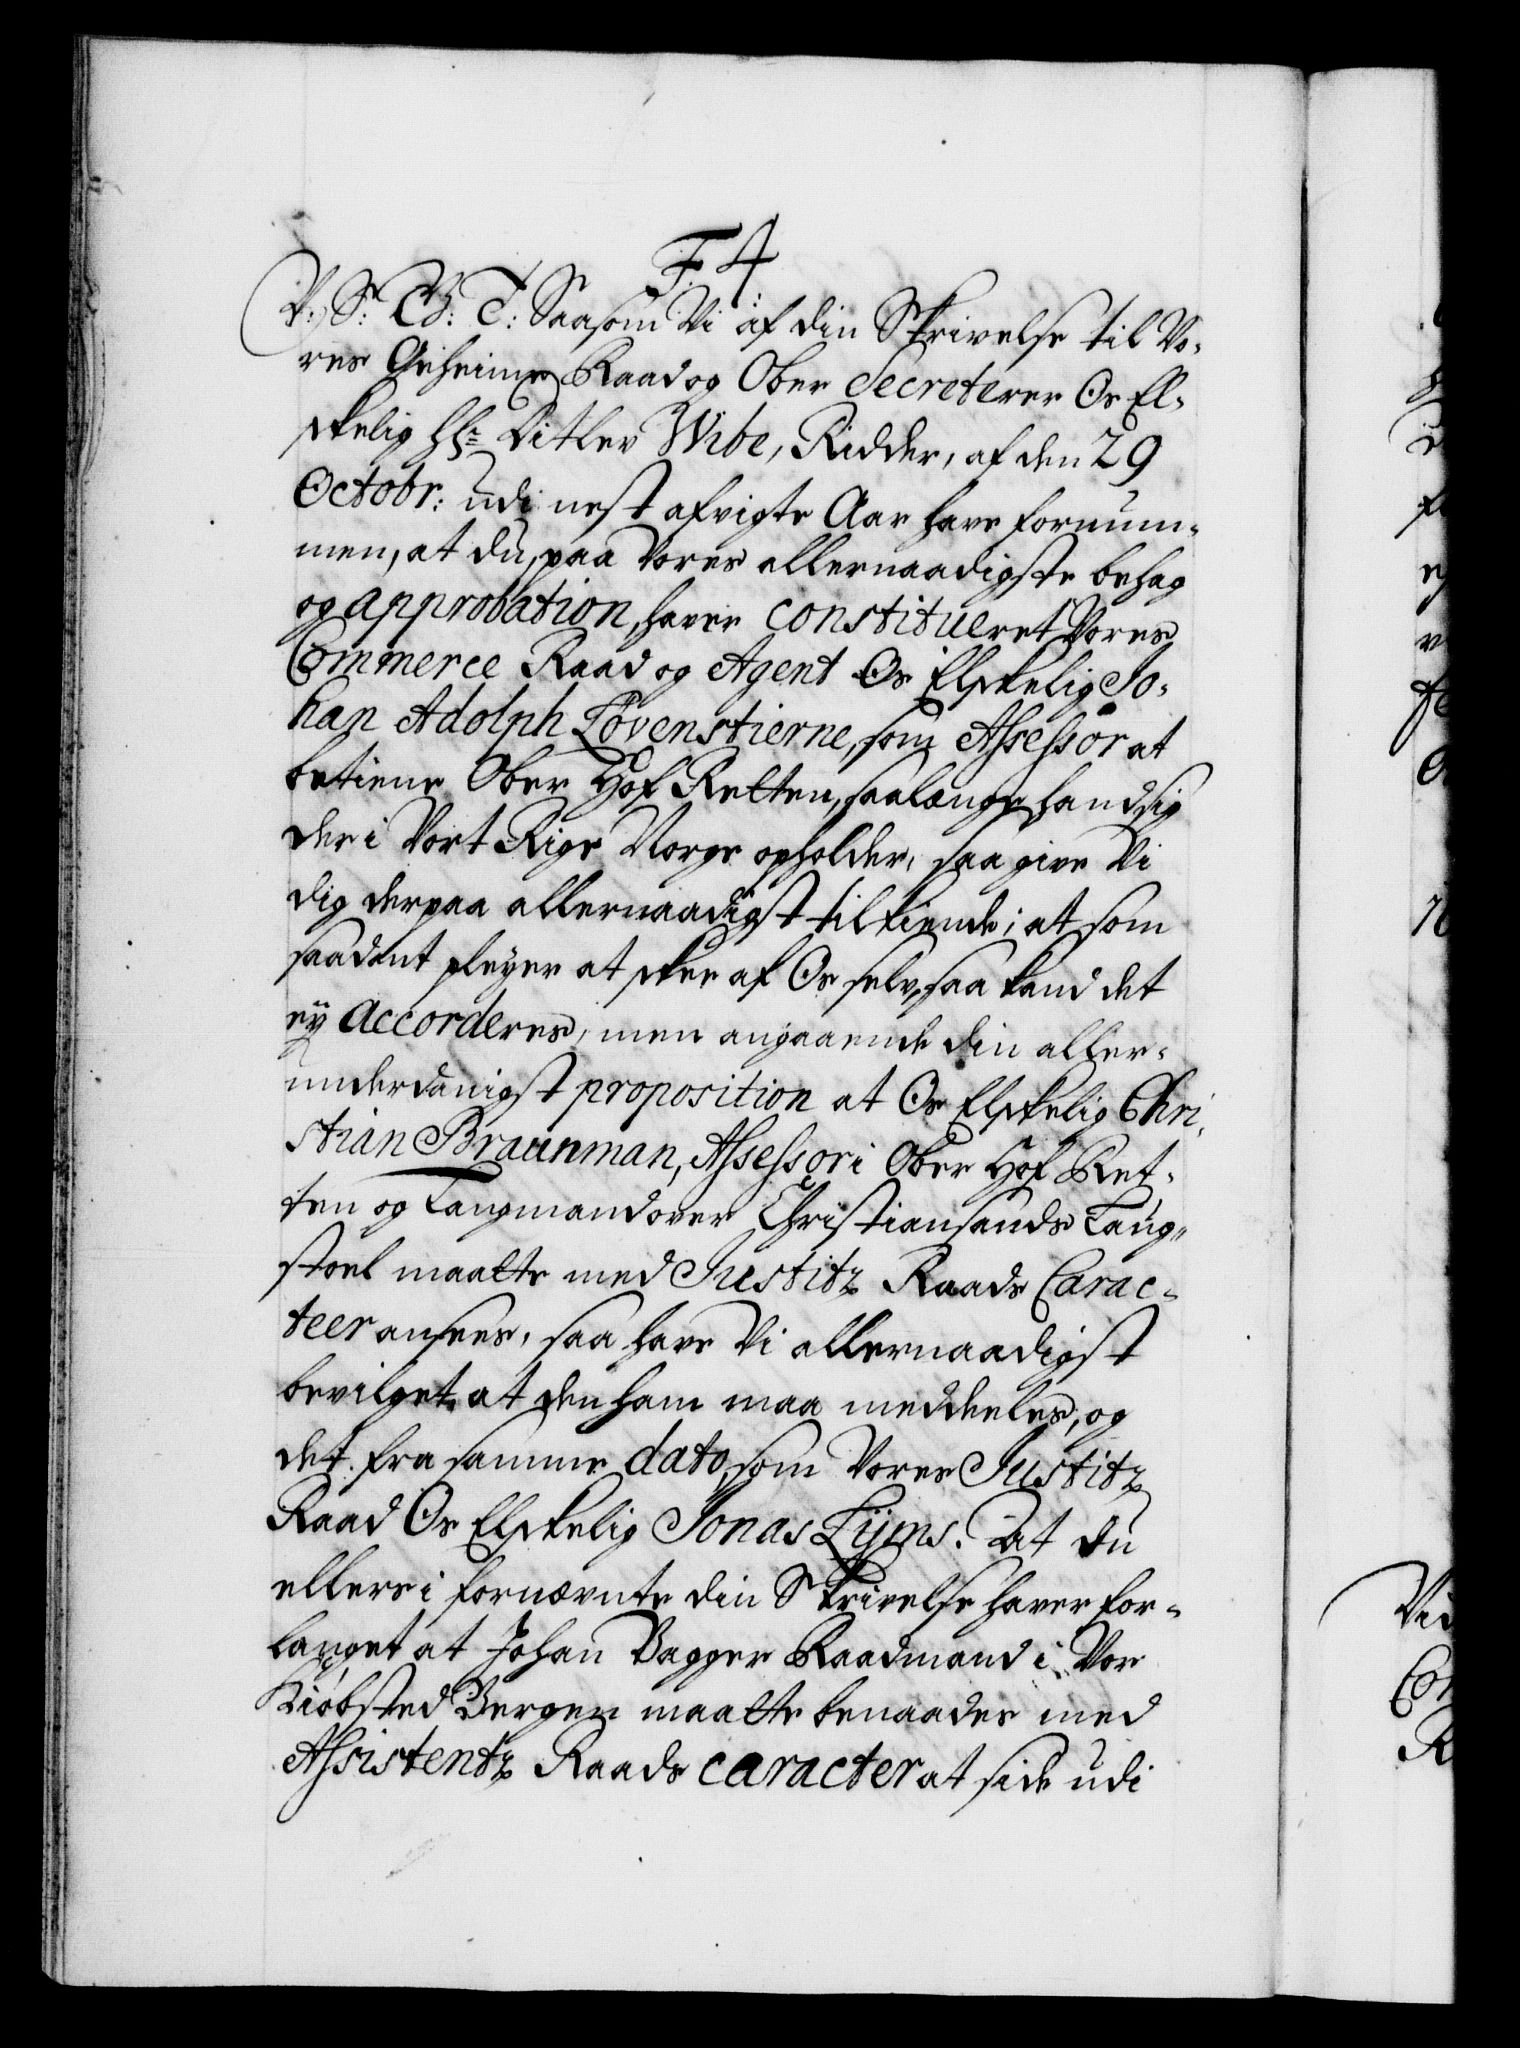 F. 4.
V: S: G: T: Saasom Vi af din Skrivelse til Vo-
res Geheime Raad og Ober Secreterer Os El-
skelig Hr: Ditlev Wibe, Ridder, af den 29
Octobr: udi nest afvigte Aar have fornum-
men, at du, paa Vores allernaadigste behag
og approbation, haver constitueret Vores
Commerce Raad og Agent Os Elskelig Jo-
han Adolph Lövenstierne, som Assessor at
betiene Ober Hof Retten, saalænge hand sig
der i Vort Rige Norge opholder, saa give Vi
dig derpaa allernaadigst tilkiende; at som
saadant pleyer at skee af Os selv, saa kand det
ey accorderes, men angaaende din aller-
underdanigst proposition at Os Elskelig Chri-
stian Braunman, Assessor i Ober Hof Ret-
ten og Laugmand over Christiansands Laug-
stoel maatte med Justitz Raads Carac-
teer ansees, saa have Vi allernaadigst
bevilget at den ham maa meddeeles, og
det fra samme dato som Vores Justitz
Raad Os Elskelig Jonas Lyms. At du
ellers i fornævnte din Skrivelse haver for-
langet at Johan Bagger Raadmand i Vor
Kiöbsted Bergen maatte benaades med
Assistentz Raads caracter at side udi